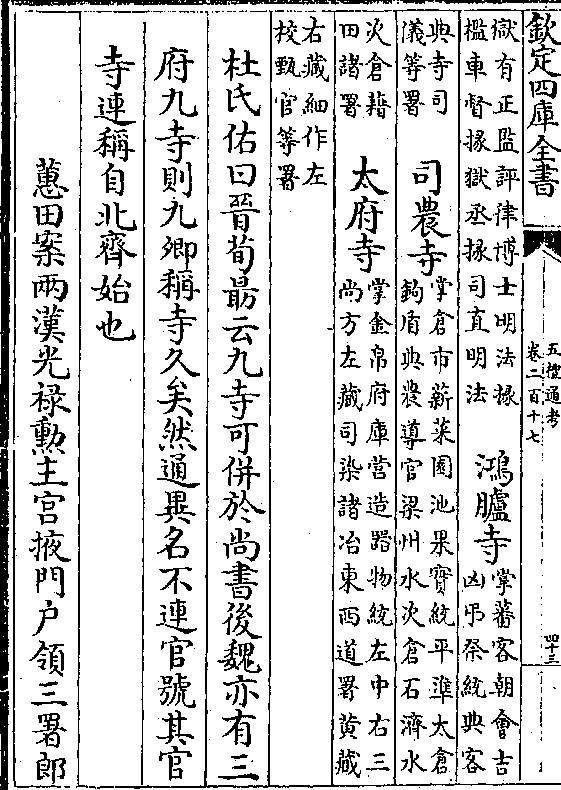 欽定四庫全書
五禮通考
卷二百十七
四十三
獄有正監評律博士明法掾
檻車督掾獄丞掾司直明法
鴻臚寺
掌蕃客朝會吉
凶弔祭統典客
典寺司
儀等署
司農寺
掌倉市薪菜園池果實統平準太倉
鉤盾典農導官梁州水次倉石濟水
次倉藉
田諸署
太府寺
掌金帛府庫營造器物統左中右三
尚方左藏司染諸冶東西道署黄藏
右藏細作左
校甄官等署
杜氏佑曰晉荀勗云九寺可併於尚書後魏亦有三
府九寺則九卿稱寺久矣然通異名不連官號其官
寺連稱自北齊始也
蕙田案兩漢光禄勲主宫掖門户領三署郎